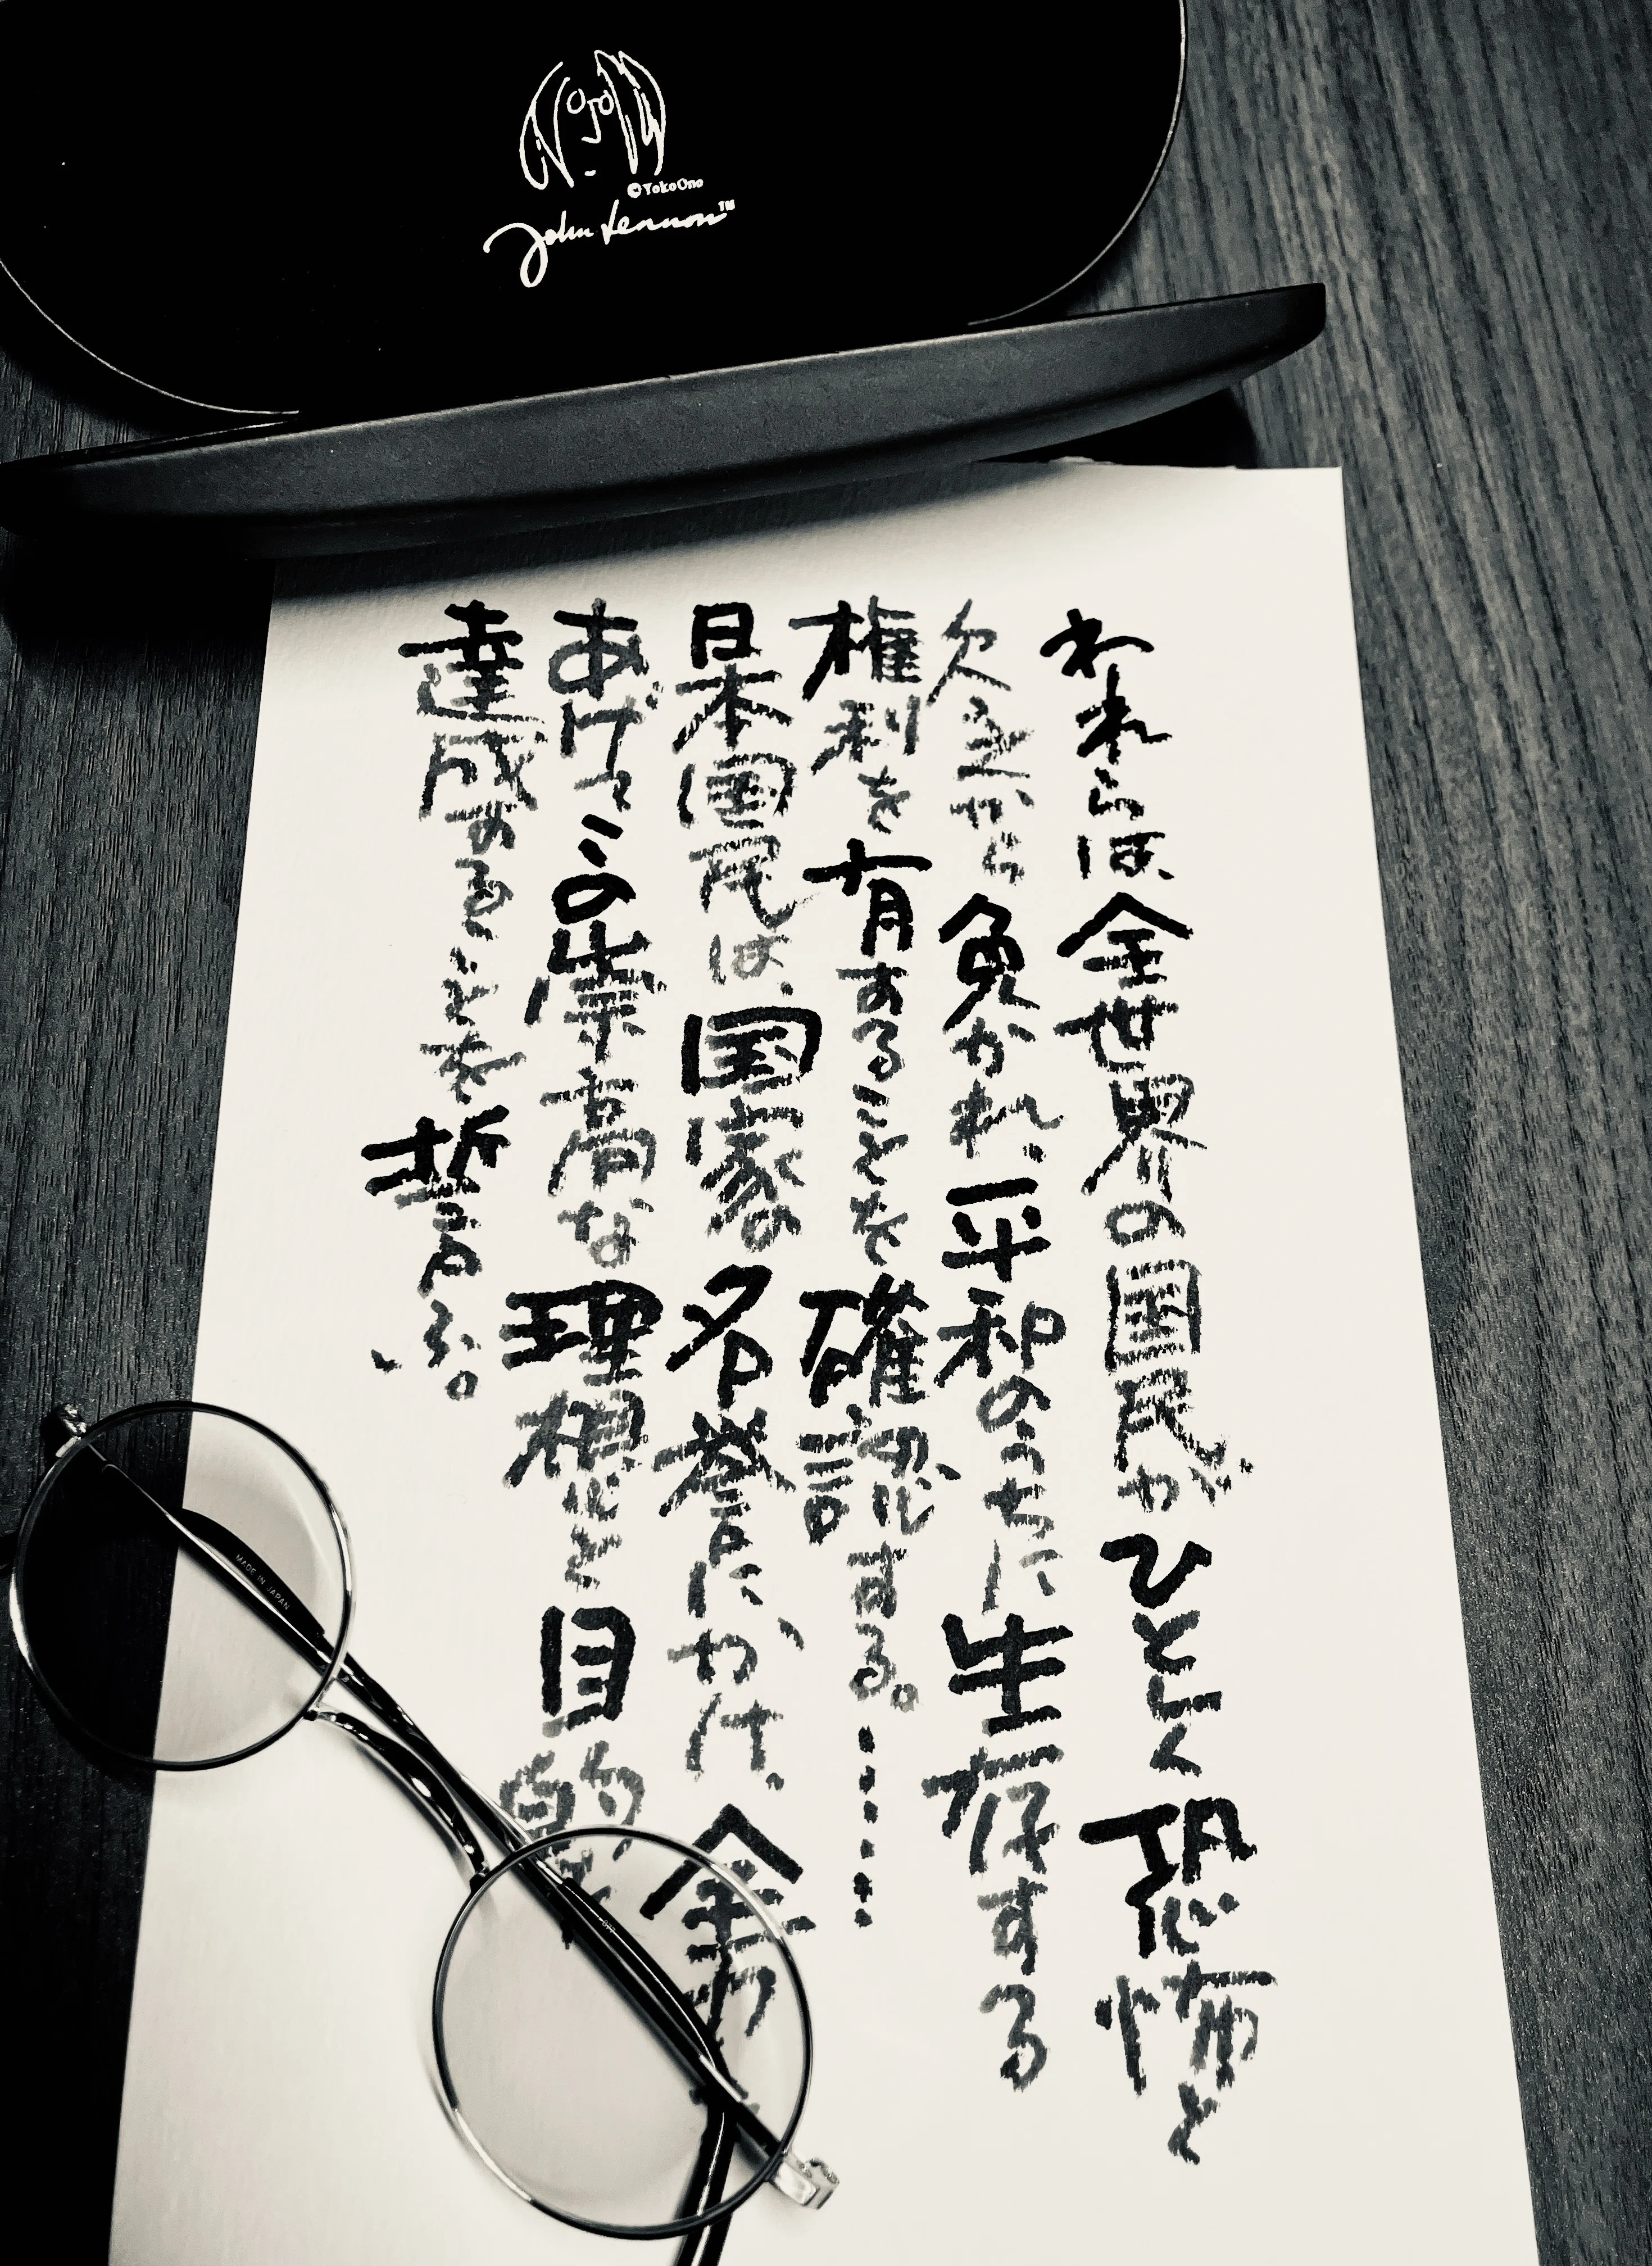 ©Yoko Ono
John Lennon™
われらは、全世界の国民がひとしく恐怖と
欠乏から免かれ、平和のうちに生存する
権利を有することを確認する。……
日本国民は、国家の名誉にかけ、全力を
あげてこの崇高な理想と目的を
達成することを誓ふ。
MADE IN JAPAN